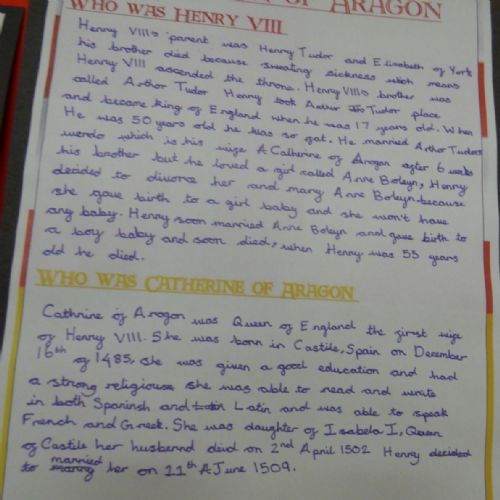 OF ARAGON
WHO WAS HENRY VIII
Henry VIIIs parent was Henry Tudor and Elisabeth of York
his brother died because sweating sickness which means
Henry VIII ascended the throne. Henry VIIIs brother was
called Arthor Tudor Henry took Tudor place
and became king of England when he was 17 years old. When
He was 50 years old he was so fat. He married Arthor Tudors
which is his wife A Catherine of Aragon after 6 weeks
his brother but he loved a girl called Anne Boleyn, Henry
decided to divorce her and marry Anne Boleyn because
she gave birth to a girl baby and she won't have
any baby. Henry soon married Anne Boleyn and gave birth to
a boy baby and soon died, when Henry was 55 years
old he died.
WHO WAS CATHERINE OF ARAGON
Cathrine of Aragon was Queen of England the first wife
of Henry VIII. She was born in Castile, Spain on December
16th of 1485, she was given a good education and had
a strong religious she was able to read and write
in both Spaninsh and Latin and was able to speak
French and Greek. She was daughter of Isabela I, Queen
of Castile her husbernd died on 2nd April 1502 Henry decided
to married her on 11th June 1509.